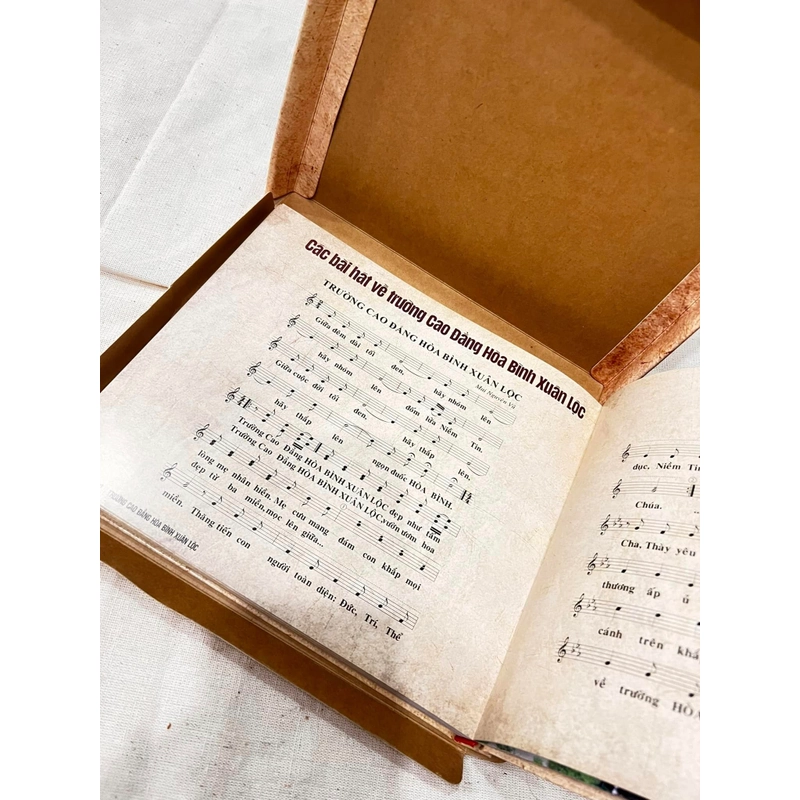 Các bài hát về trường Cao Đẳng Hòa Bình Xuân Lộc
TRƯỜNG CAO ĐẲNG HÒA BÌNH XUÂN LỘC
Mai Nguyên Vũ
Giữa đêm dài tối đen, hãy nhóm lên
hãy nhóm lên đốm lửa Niềm Tin.
Giữa cuộc đời tối đen, hãy thắp lên,
hãy thắp lên ngọn đuốc HÒA BÌNH.
Trường Cao Đẳng HÒA BÌNH XUÂN LỘC đẹp như tấm
Trường Cao Đẳng HÒA BÌNH XUÂN LỘC, vườn ươm hoa
lòng mẹ nhân hiền. Mẹ cưu mang đám con khắp mọi
đẹp từ ba miền, mọc lên giữa...
miền. Thăng tiến con người toàn diện: Đức, Trí, Thể
TRƯỜNG CAO ĐẲNG HÒA BÌNH XUÂN LỘC
dục, Niềm Tin
Chúa. ...
Cha, Thầy yêu
thương ấp ủ
cánh trên khắ
về trường HÒA